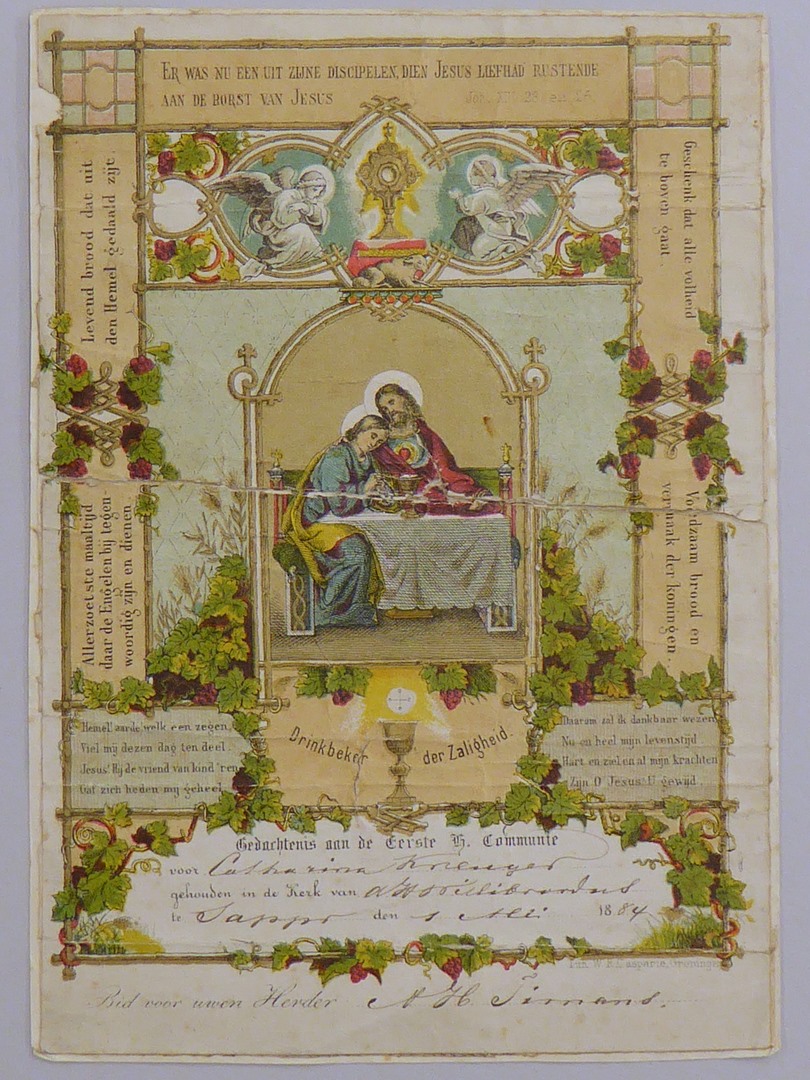 ER WAS NU EEN UIT ZIJNE DISCIPELEN, DIEN JESUS LIEFHAD RUSTENDE
AAN DE BORST VAN JESUS
Joh. XIII 23 en 25.
Levend brood dat uit
den Hemel gedaald zijt.
Geschenk dat alle volheid
te boven gaat.
Allerzoetste maaltijd
daar de Engelen bij tegen-
woordig zijn en dienen
Voedzaam brood en
vermaak der koningen.
Hemel! aarde! welk een zegen,
Viel mij dezen dag ten deel.
Jesus! Hij de vriend van kind'ren
Gaf zich heden mij geheel
Drinkbeker der Zaligheid.
Daarom zal ik dankbaar wezen
Nu en heel mijn levenstijd
Hart en ziel en al mijn krachten
Zijn O Jesus! U gewijd.
Gedachtenis aan de Eerste H. Communie
voor Catharina
gehouden in de Kerk van d H Willibrordus
te Sappr den 1 Mei 1884
Lith. W. R. Casparie, Groningen
Bid voor uwen Herder A H. Timans.